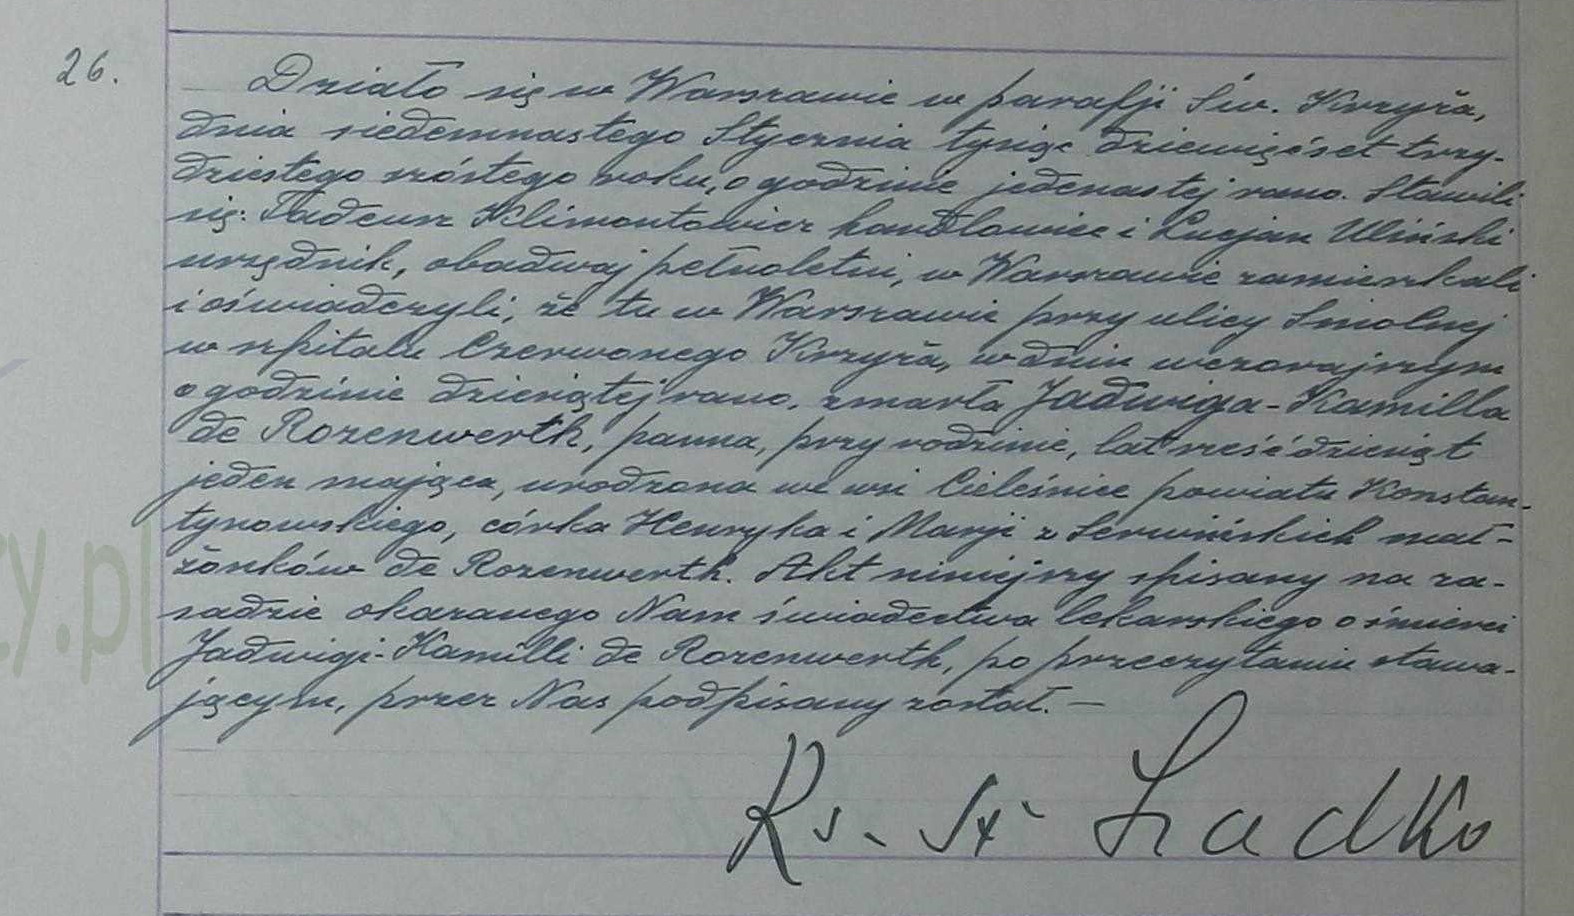 26.
Działo się w Warszawie w parafji Św. Krzyża,
dnia siedemnastego Stycznia tysiąc dziewięćset trzy-
dziestego szóstego roku, o godzinie jedenastej rano. Stawili
się: Tadeusz Klimontowicz handlowiec i Lucjan Uliński
urzędnik, obadwaj pełnoletni, w Warszawie zamieszkali
i oświadczyli, że tu w Warszawie przy ulicy Smolnej
w szpitalu Czerwonego Krzyża, w dniu wczorajszym
o godzinie dziesiątej rano, zmarła Jadwiga-Kamilla
de Rozenwerth, panna, przy rodzinie, lat sześćdziesiąt
jeden mająca, urodzona we wsi Cieleśnica powiatu Konstan-
tynowskiego, córka Henryka i Marji z Serwińskich mał-
żonków de Rozenwerth. Akt niniejszy spisany na za-
sadzie okazanego Nam świadectwa lekarskiego o śmierci
Jadwigi-Kamilli de Rozenwerth, po przeczytaniu stawa-
jącym, przez Nas podpisany został. —
Ks. St.
zy.pl